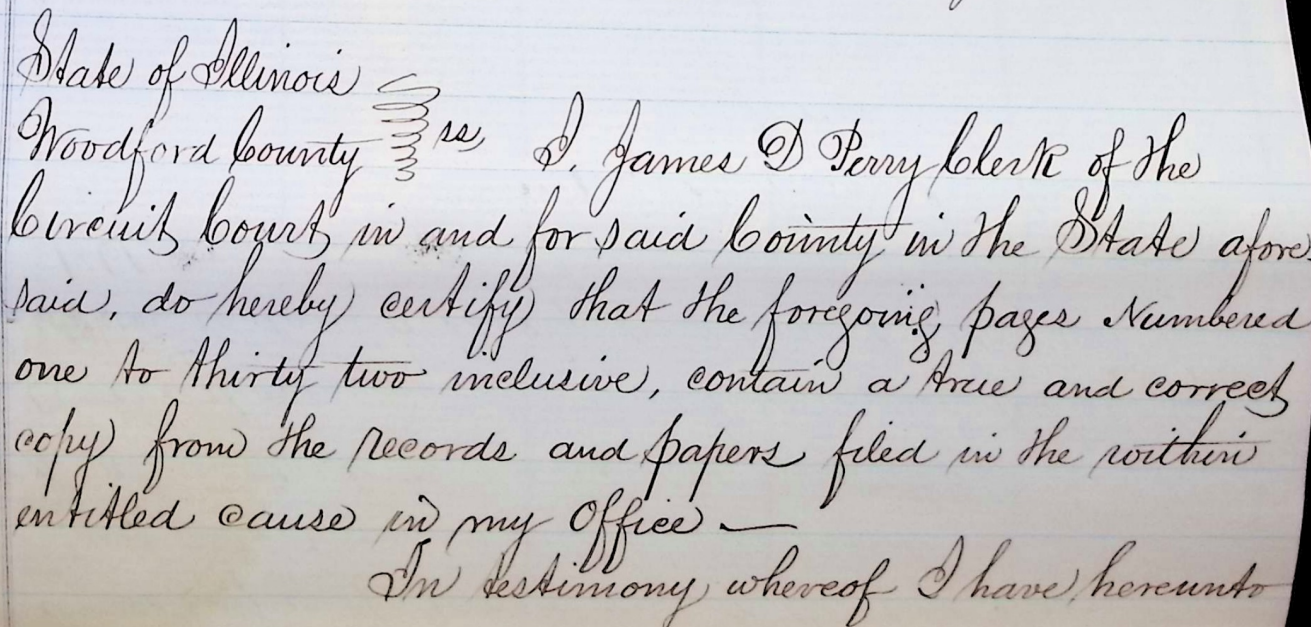 State of Illinois
Woodford County ss, I. James D Perry Clerk of the
Circuit Court in and for said County in the State afore
said, do hereby certify that the foregoing pages Numbered
one to thirty two inclusive, contain a true and correct
copy from the records and papers filed in the within
entitled cause in my Office —
In testimony whereof I have hereunto